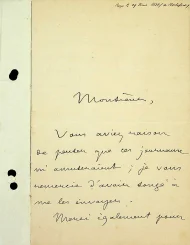 Monsieur,
Vous aviez raison
de penser que ces journaux
m'amuseraient ; je vous
remercie d'avoir songé à
me les envoyer.
Merci également pour